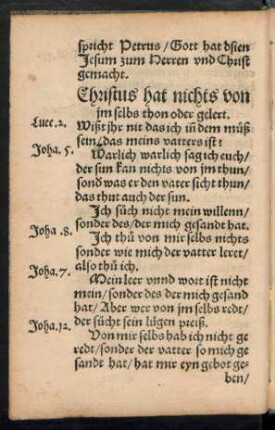 spricht Petrus / Gott hat dsien
Jesum zum Herren vnd Christ
gemacht.
Christus hat nichts von
jm selbs thon oder gelert.
Luce.2. Wißt jhr nit das ich in dem müß
sein / das meins vatters ist:
Joha. 5. Warlich warlich sag ich euch /
der sun kan nichts von jm thun /
sond was er den vater sicht thun /
das thut auch der sun.
Ich süch nicht mein willenn /
sonder des / der mich gesandt hat.
Joha .8. Ich thů von mir selbs nichts
sonder wie mich der vatter leret /
also thů ich.
Joha.7. Mein leer vnnd wort ist nicht
mein / sonder des der mich gesand
hat / Aber wer von jm selbs redt /
der sücht sein lügen preiß.
Joha.12. Von mir selbs hab ich nicht ge
redt / sonder der vatter so mich ge
sandt hat / hat mir eyn gebot ge-
ben /